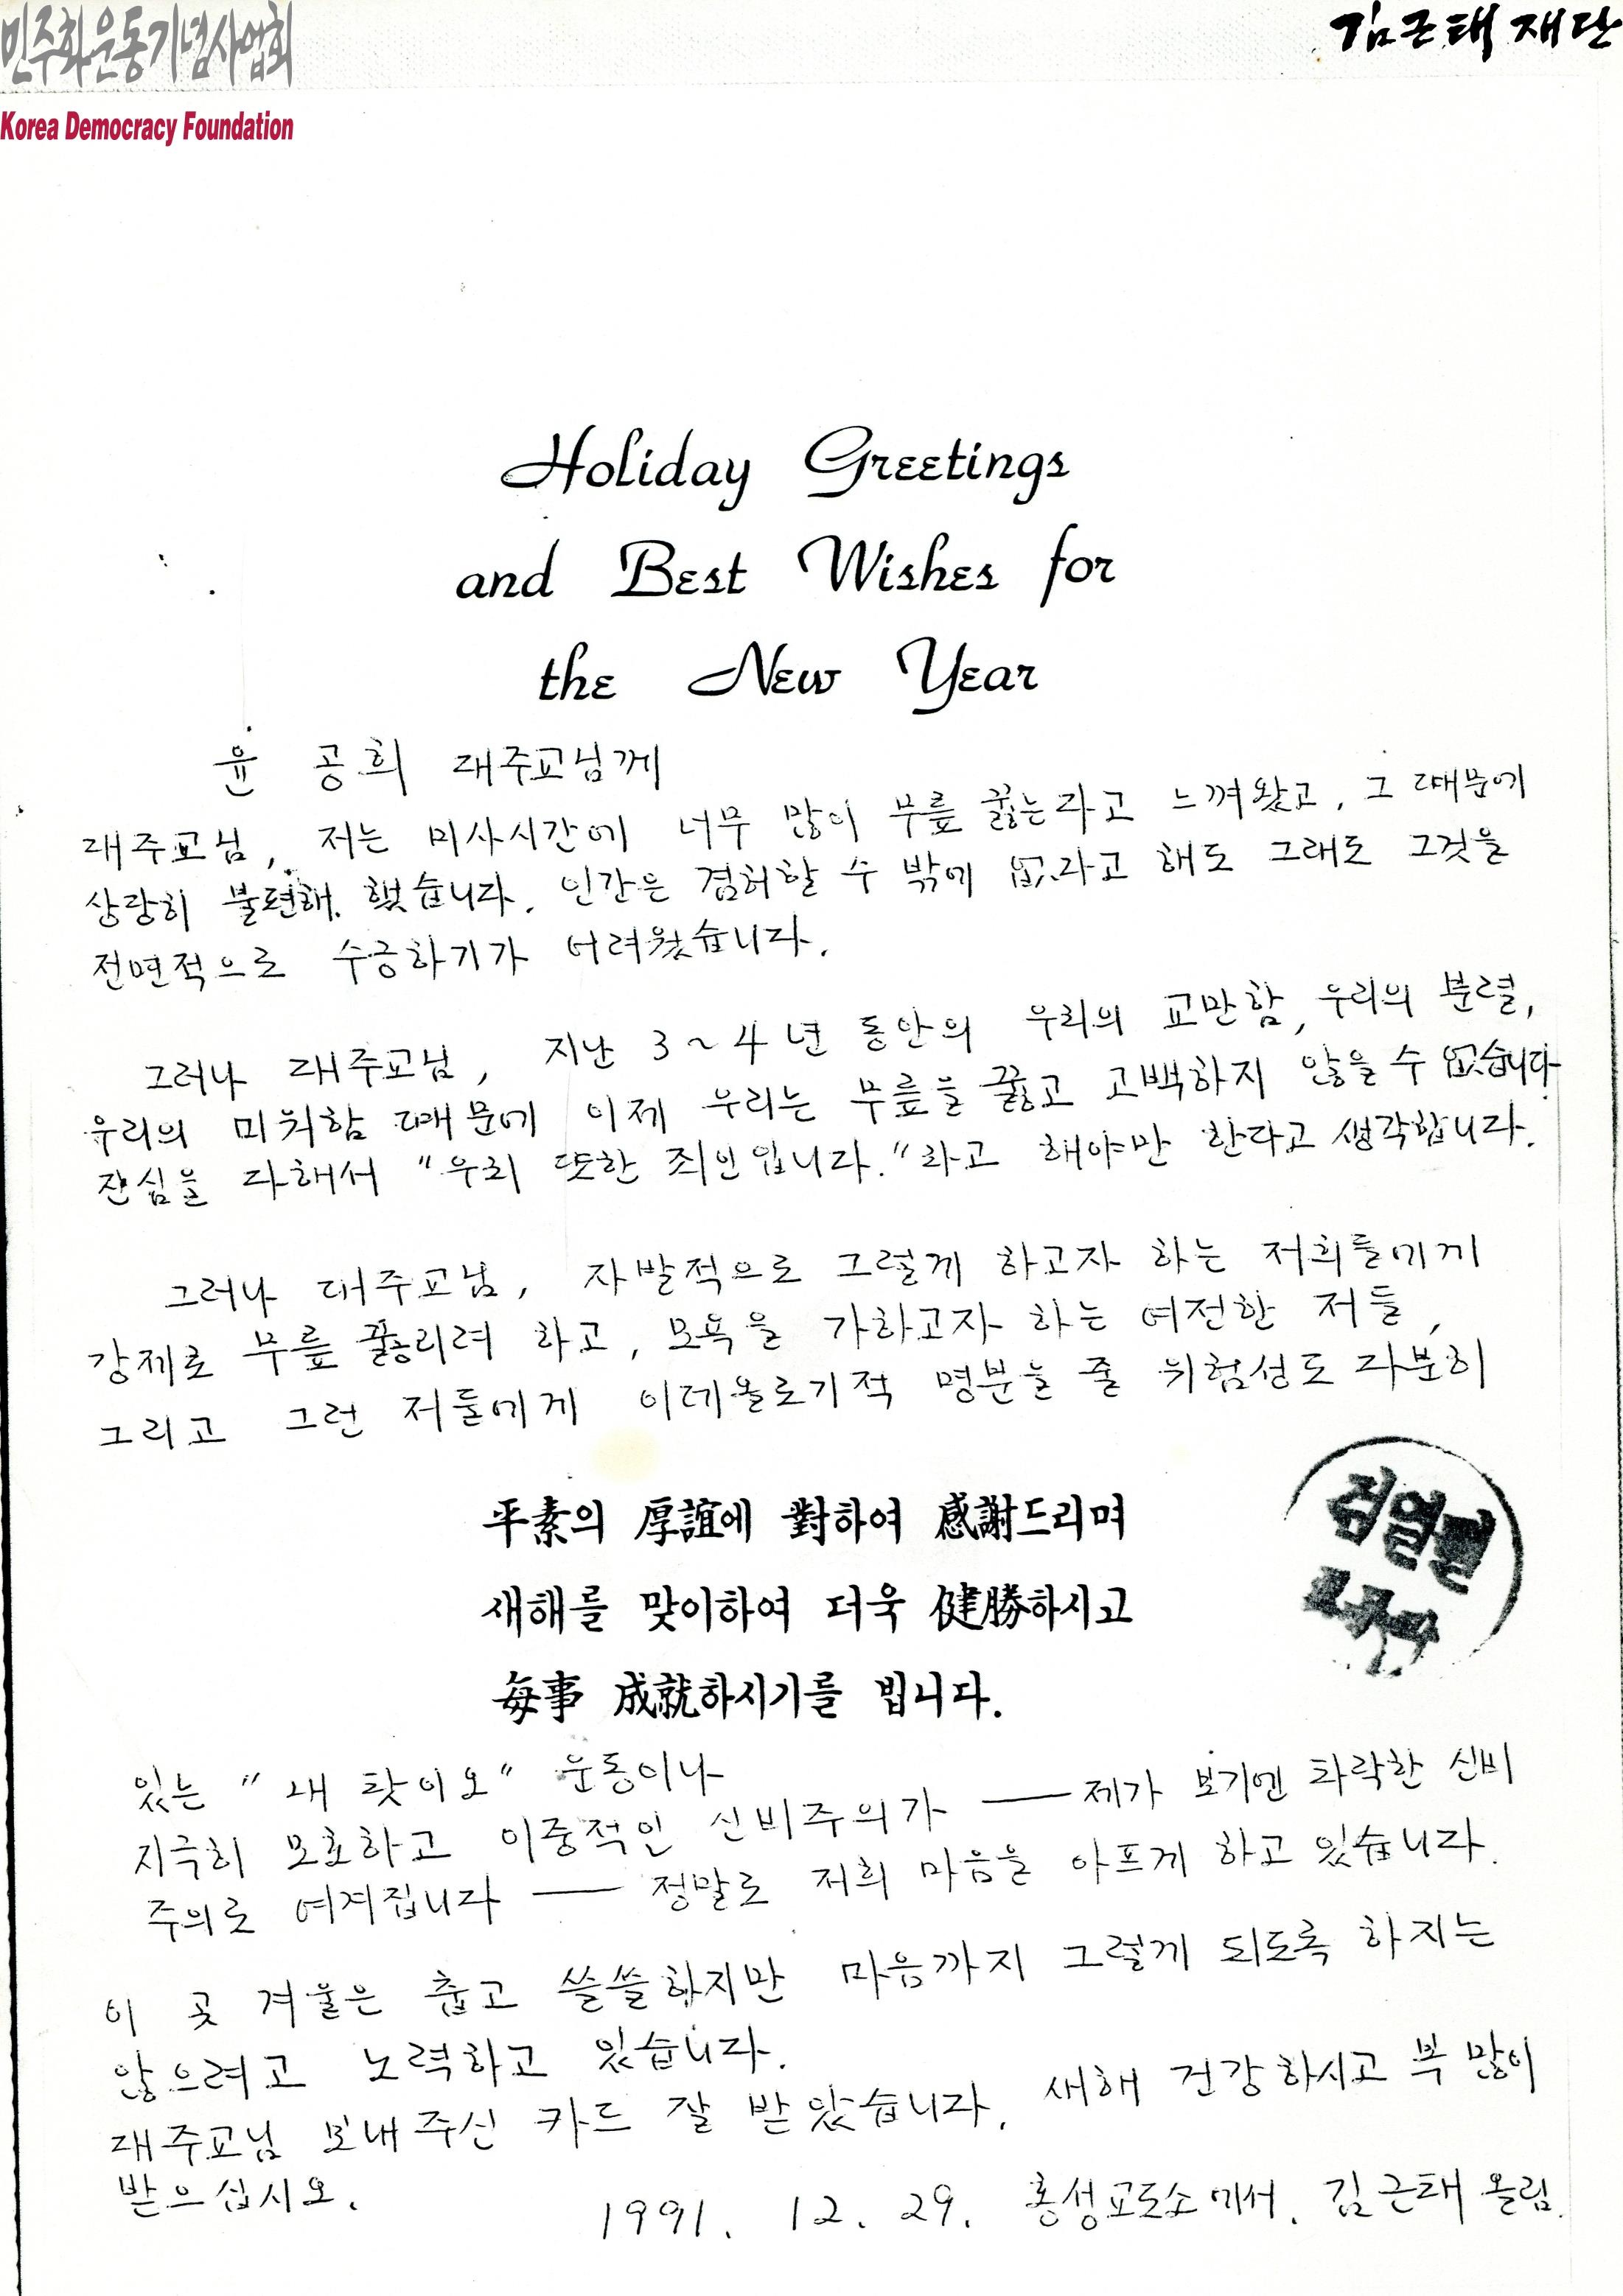 민주화운동기념사업회
Korea Democracy Foundation
김근태재단
Holiday Greetings
and Best Wishes for
the New Year
윤 공희 대주교님께
대주교님, 저는 미사시간에 너무 많이 무릎 꿇는다고 느껴왔고, 그 때문에
상당히 불편해 했습니다. 인간은 겸허할 수 밖에 없다고 해도 그래도 그것을
전면적으로 수긍하기가 어려웠습니다.
그러나 대주교님, 지난 3~4년 동안의 우리의 교만함, 우리의 분렬,
우리의 미워함 때문에 이제 우리는 무릎을 꿇고 고백하지 않을 수 없습니다
진심을 다해서 "우리 또한 죄인입니다."라고 해야만 한다고 생각합니다.
그러나 대주교님, 자발적으로 그렇게 하고자 하는 저희들에게
강제로 무릎 꿇리려 하고, 모욕을 가하고자 하는 여전한 저들,
그리고 그런 저들에게 이데올로기적 명분을 줄 위험성도 다분히
平素의 厚誼에 對하여 感謝드리며
새해를 맞이하여 더욱 健勝하시고
每事 成就하시기를 빕니다.
검열필
있는 "내 탓이오" 운동이나
지극히 모호하고 이중적인 신비주의가 ── 제가 보기엔 타락한 신비
주의로 여겨집니다 ── 정말로 저희 마음을 아프게 하고 있습니다.
이 곳 겨울은 춥고 쓸쓸하지만 마음까지 그렇게 되도록 하지는
않으려고 노력하고 있습니다.
대주교님 보내주신 카드 잘 받았습니다. 새해 건강하시고 복 많이
받으십시오.
1991. 12. 29. 홍성교도소에서. 김근태 올림.